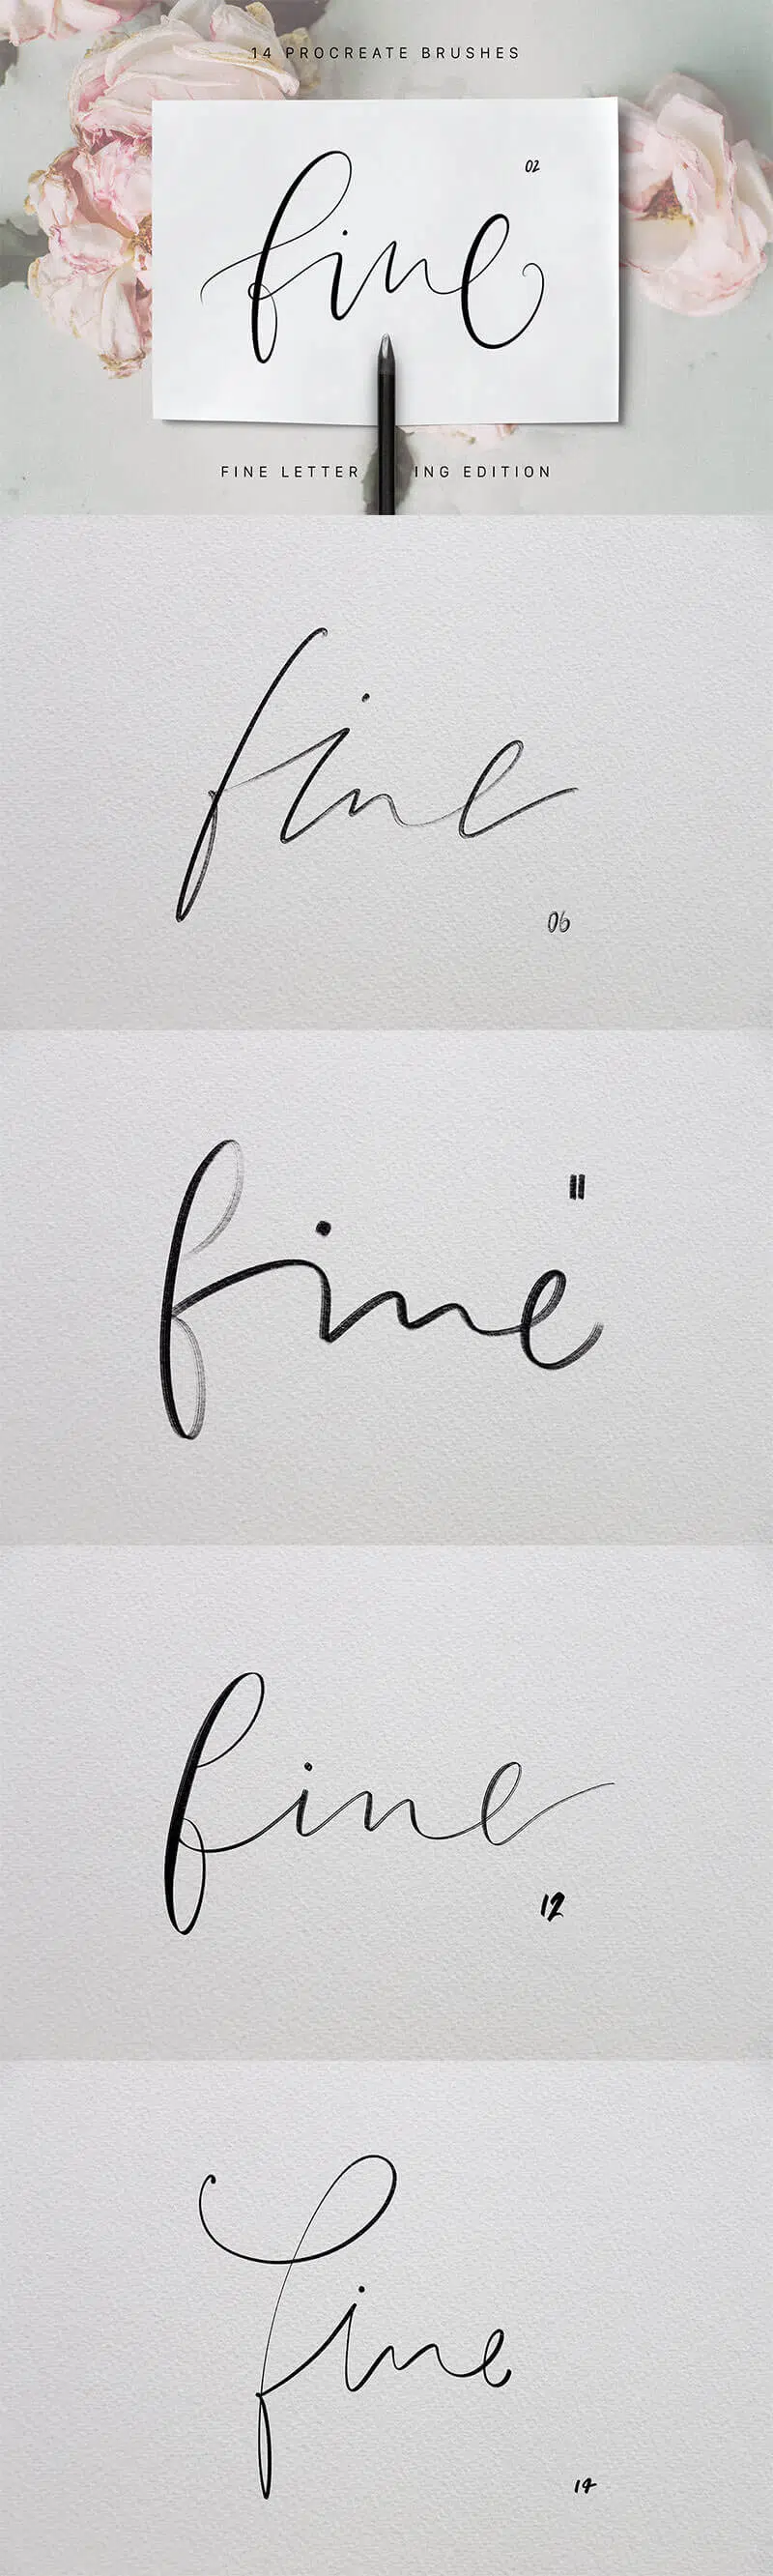 14 PROCREATE BRUSHES
02
fine
FINE LETTERING EDITION
fine
06
11
fine
fine
12
fine
14